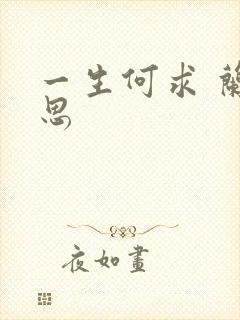 一生何求
思
夜如畫